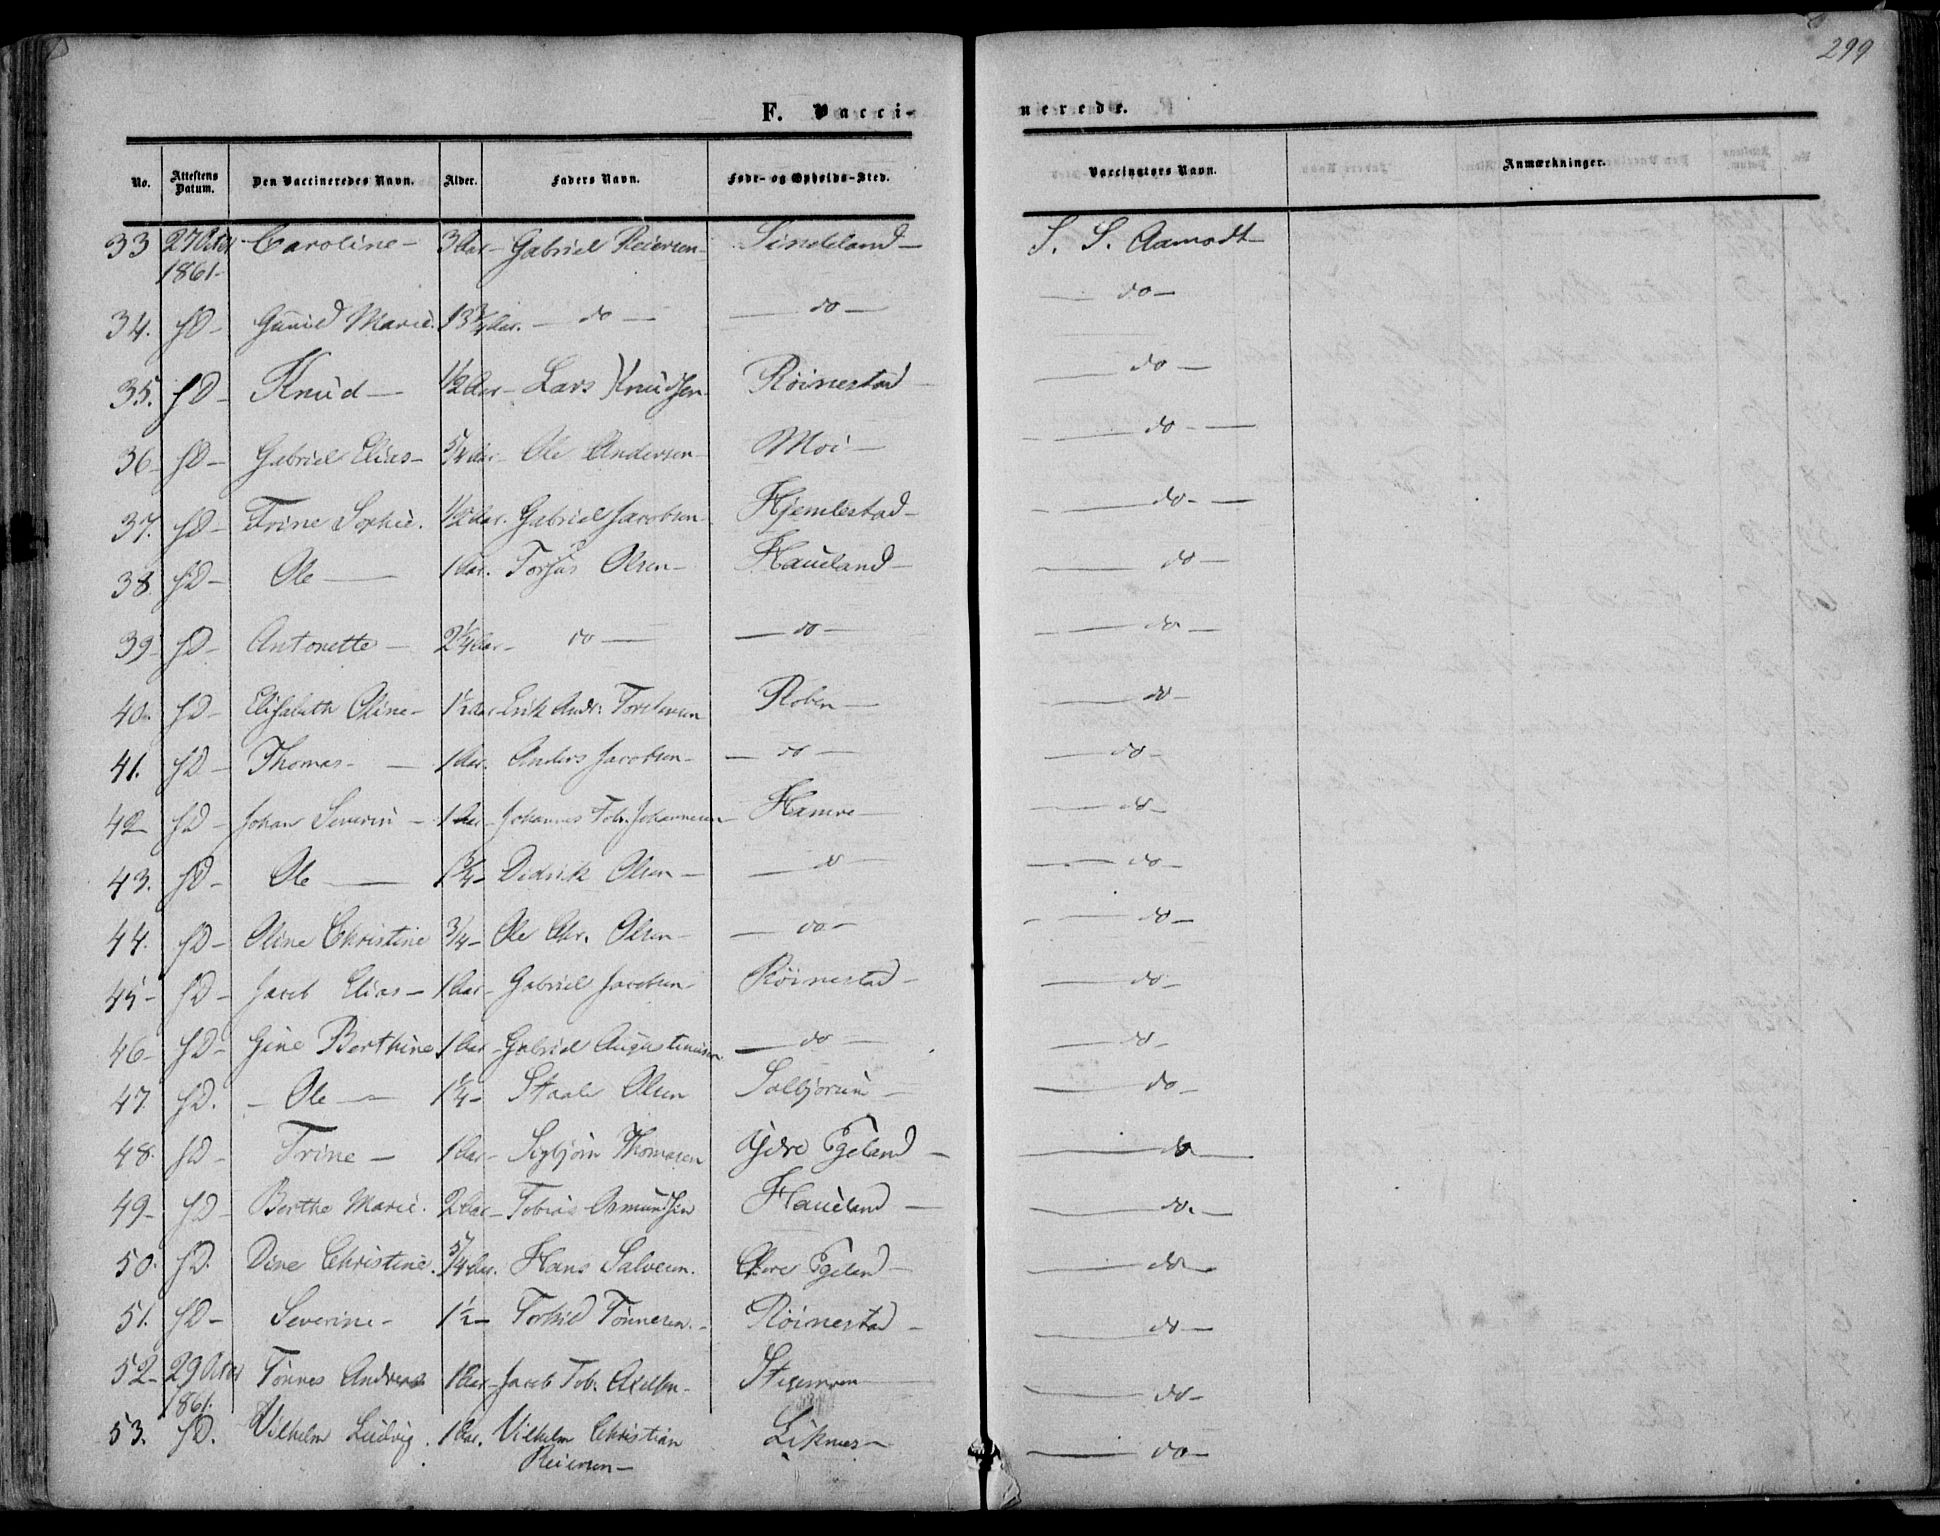 299
F. Vacci-
nerede.
No. Attestens Datum. Den Vaccineredes Navn. Alder. Faders Navn. Føde- og Opholds-Sted. Vaccinateurs Navn. Anmærkninger.
33 27 Octbr 1861 Caroline – 3 Aar – Gabriel Reiersen – Sindeland – S. S. Aamodt –
34. SD – Gunild Marie. 1 3/4 Aar. – do – – do – – do –
35. SD – Knud – 1/2 Aar – Lars Knudsen – Røinestad – – do –
36 – SD – Gabriel Elias – 5/4 Aar – Ole Andersen – Moi – – do –
37. SD – Trine Sophie. 1/2 Aar. Gabriel Jacobsen – Hjemlestad – – do –
38 SD – Ole – 1 Aar. Torjus Olsen – Haueland – – do –
39 – SD – Antonette – 2 1/4 Aar – do – – do – – do –
40. SD – Elisabeth Oline – 1 1/2 Aar Erik Andr. Torstensen – do –
41. SD – Thomas – 1 Aar. Anders Jacobsen – – do – – do –
42 SD – Johan Severin – 1 Aar – Johannes Tob. Johannesen – Hamre – – do –
43. SD – Ole – Didrik Olsen – – do – – do –
44. SD – Oline Christine 3/4 – Ole Chr. Olsen – – do – – do –
45 – SD – Jacob Elias – 1 Aar – Gabriel Jacobsen – Røinestad – – do –
46 – SD – Gine Berthine 1 Aar – Gabriel Augustinusen – do – – do –
47. SD. – Ole – Staale Olsen – do –
48. SD – Trine – 1 Aar – Sigbjørn Thomasen Ydre Egeland – – do –
49 – SD – Berthe Marie. 2 Aar – Tobias Osmundsen Haueland – – do. –
50. SD. Dine Christine. 5/4 Aar. Hans Salvesen. Egeland – – do –
51. SD – Severine – 1 1/2 – Torkild Tønnesen. – Røinestad – – do –
52 – 29 Octbr 1861. Tønnes Andreas 1 Aar – Jacob Tob. Axelsen – – do –
53. SD. Vilhelm Ludvig. 1 Aar. Vilhelm Christian Reiersen – Liknes – – do –